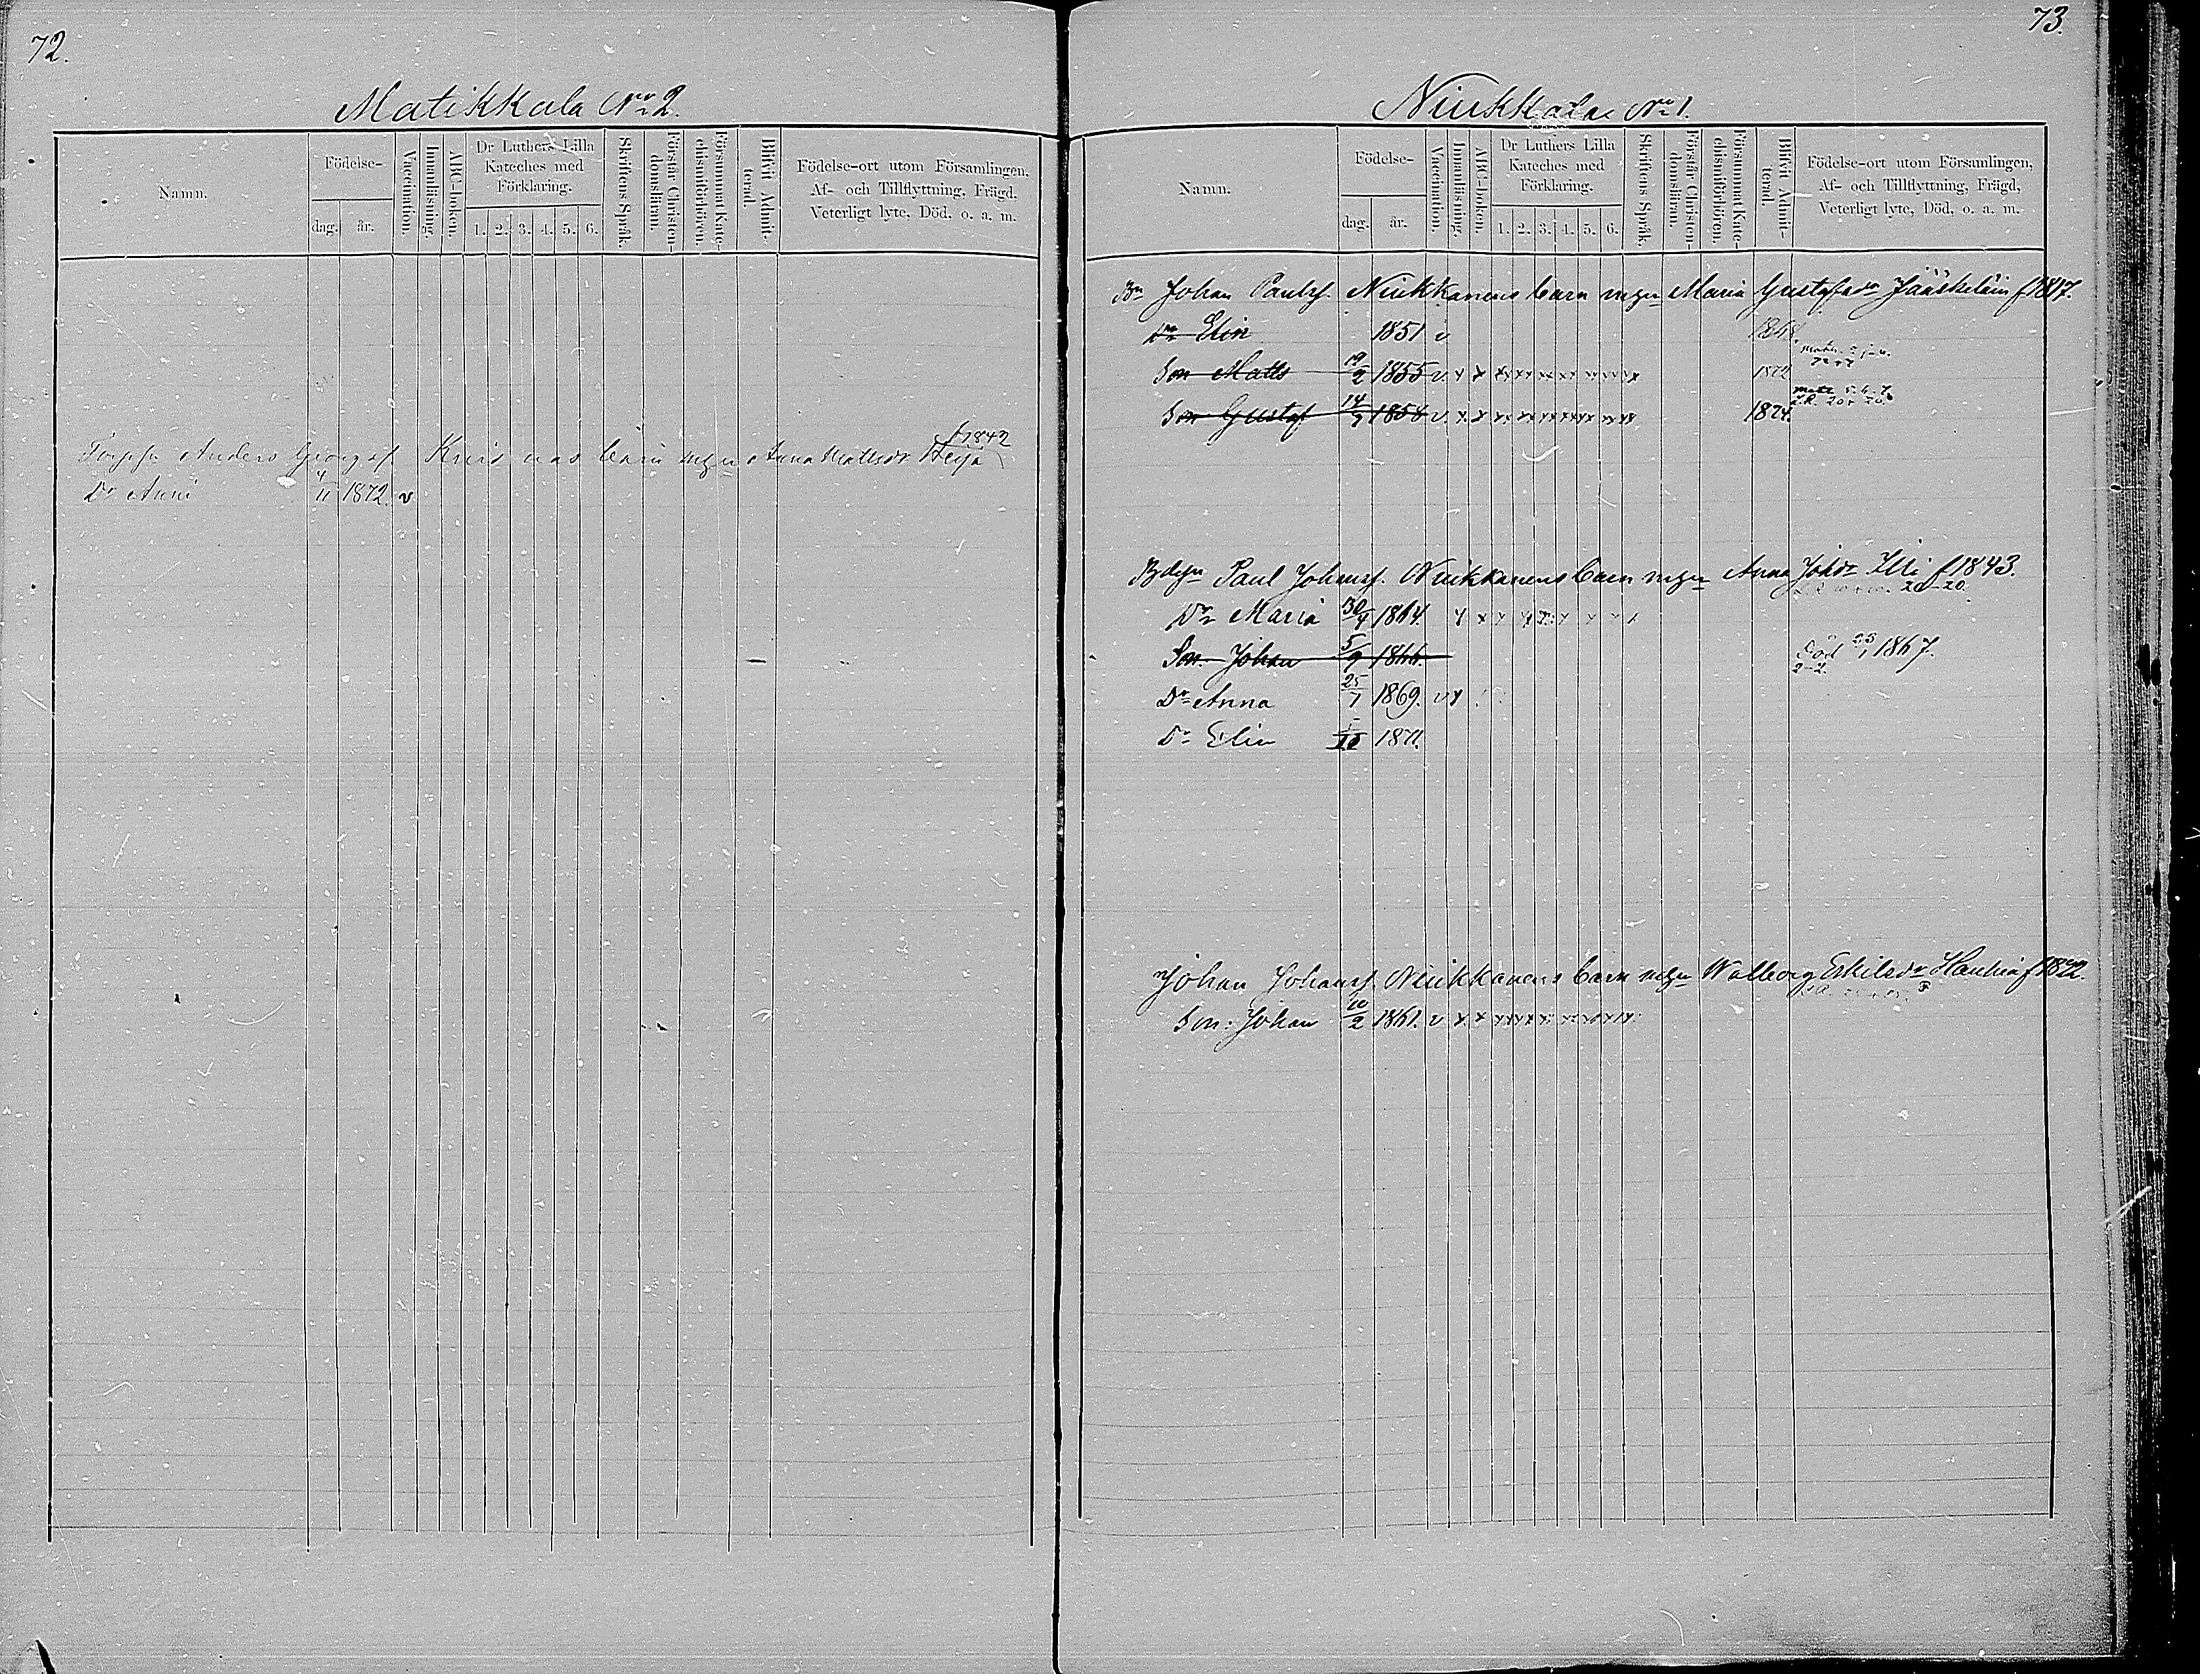 72.
Matikkala No 2.
Namn.
Födelse-
dag. år.
Vaccination.
Innanläsning.
ABC-boken.
Dr Luthers Lilla Kateches med Förklaring.
1. 2. 3. 4. 5. 6.
Skriftens Språk.
Förstår Christendomsläran.
Försummat Katechismiförhören.
Blifvit Admitterad.
Födelse-ort utom Församlingen,
Af- och Tillflyttning, Frägd,
Veterligt lyte, Död, o. a. m.
f 1842
Anders Georgsf barn m Anna Mattsdr
Dr Anni 4/11 1872. v
73.
Niukkala No 1.
Namn.
Födelse-
dag. år.
Vaccination.
Innanläsning.
ABC-boken.
Dr Luthers Lilla Kateches med Förklaring.
1. 2. 3. 4. 5. 6.
Skriftens Språk.
Förstår Christendomsläran.
Försummat Katechismiförhören.
Blifvit Admitterad.
Födelse-ort utom Församlingen,
Af- och Tillflyttning, Frägd,
Veterligt lyte, Död, o. a. m.
Bn Johan Paulsf. Niukkanens barn m Maria Gustafsdr Jääskeläin f 1817.
Dr Elin 1851 v 1868.
Son Matts 19/2 1855 v. x x x x x x x x x x x 1872
Son Gustaf 14/9 1858 v. x x x x x x x x x x x 1874.
Paul Johansf. Niukkanens barn m Anna Johdr Illi f 1843.
20-20.
Dr Maria 30/4 1864. x x x x x x x x
Son Johan 5/9 1866. Död 23/1 1867.
2-2.
Dr Anna 25/1 1869. v x
Dr Elin 1871.
Johan Johansf. Niukkanens barn m Walborg Eskilsdr f 1822.
Son: Johan 10/2 1861. v x x x x x x x x x x x